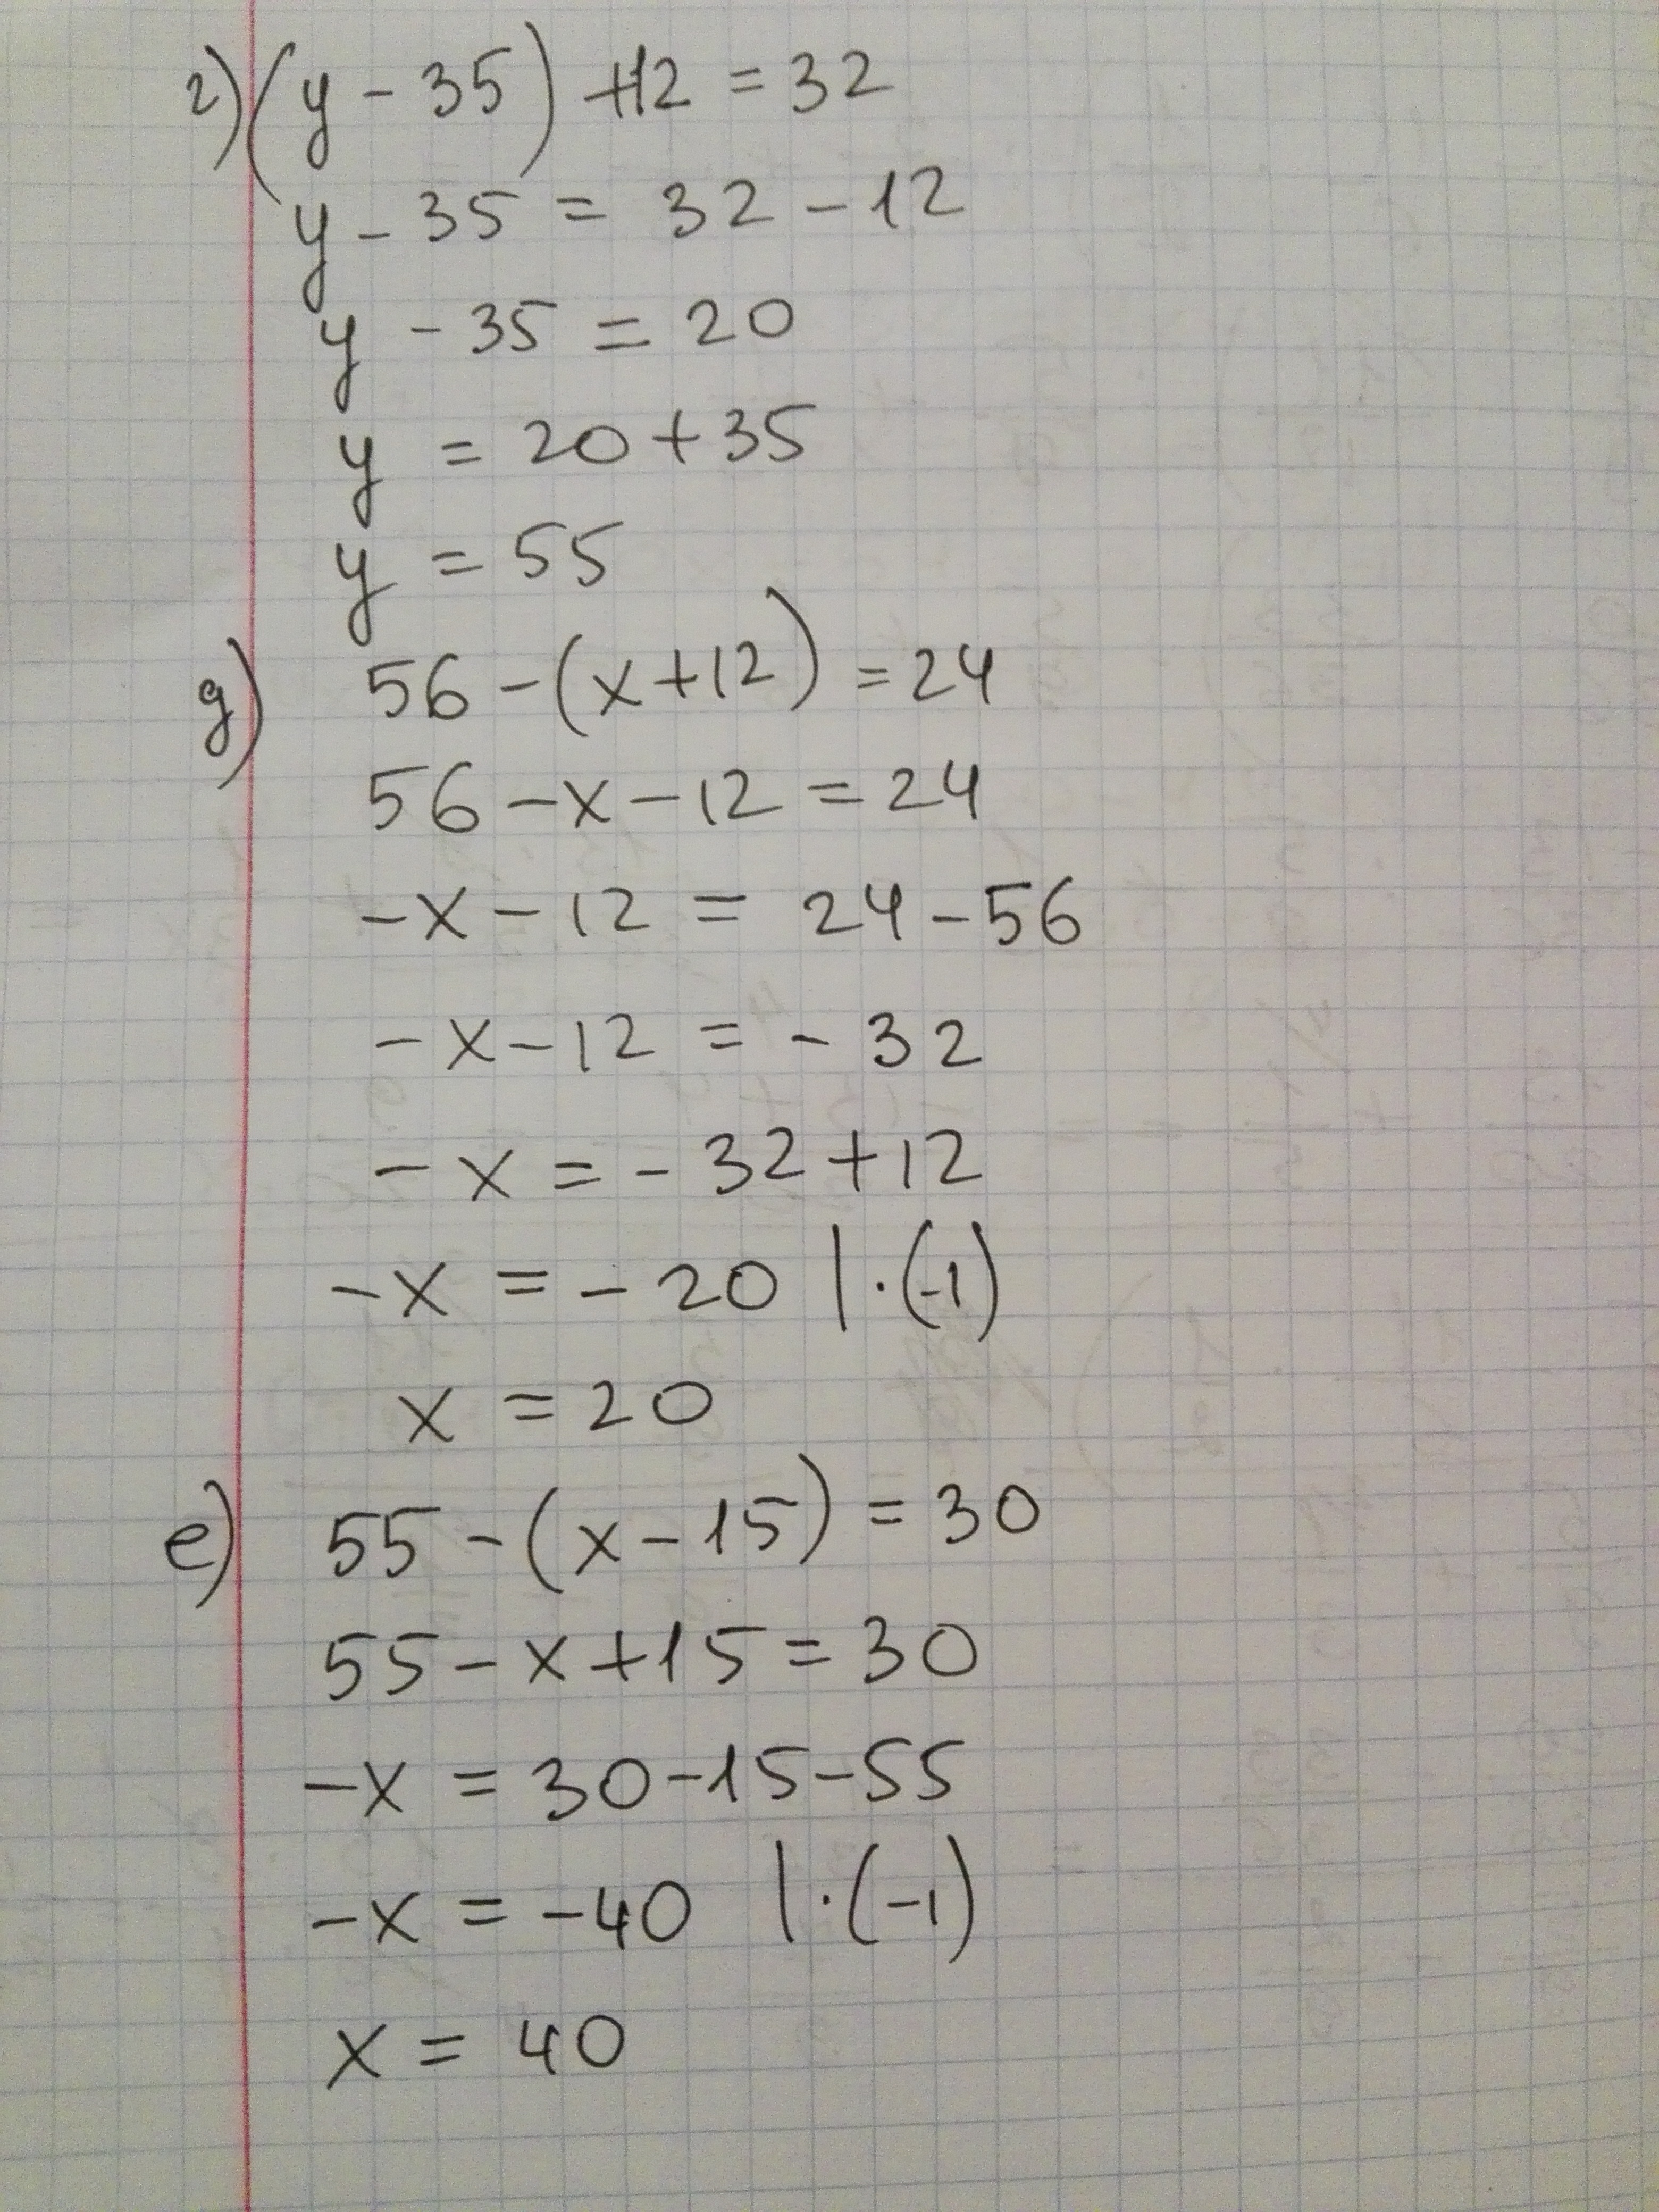 г) (y - 35) + 12 = 32
y - 35 = 32 - 12
y - 35 = 20
y = 20 + 35
y = 55
д) 56 - (x + 12) = 24
56 - x - 12 = 24
-x - 12 = 24 - 56
-x - 12 = -32
-x = -32 + 12
-x = -20 | · (-1)
x = 20
е) 55 - (x - 15) = 30
55 - x + 15 = 30
-x = 30 - 15 - 55
-x = -40 | · (-1)
x = 40